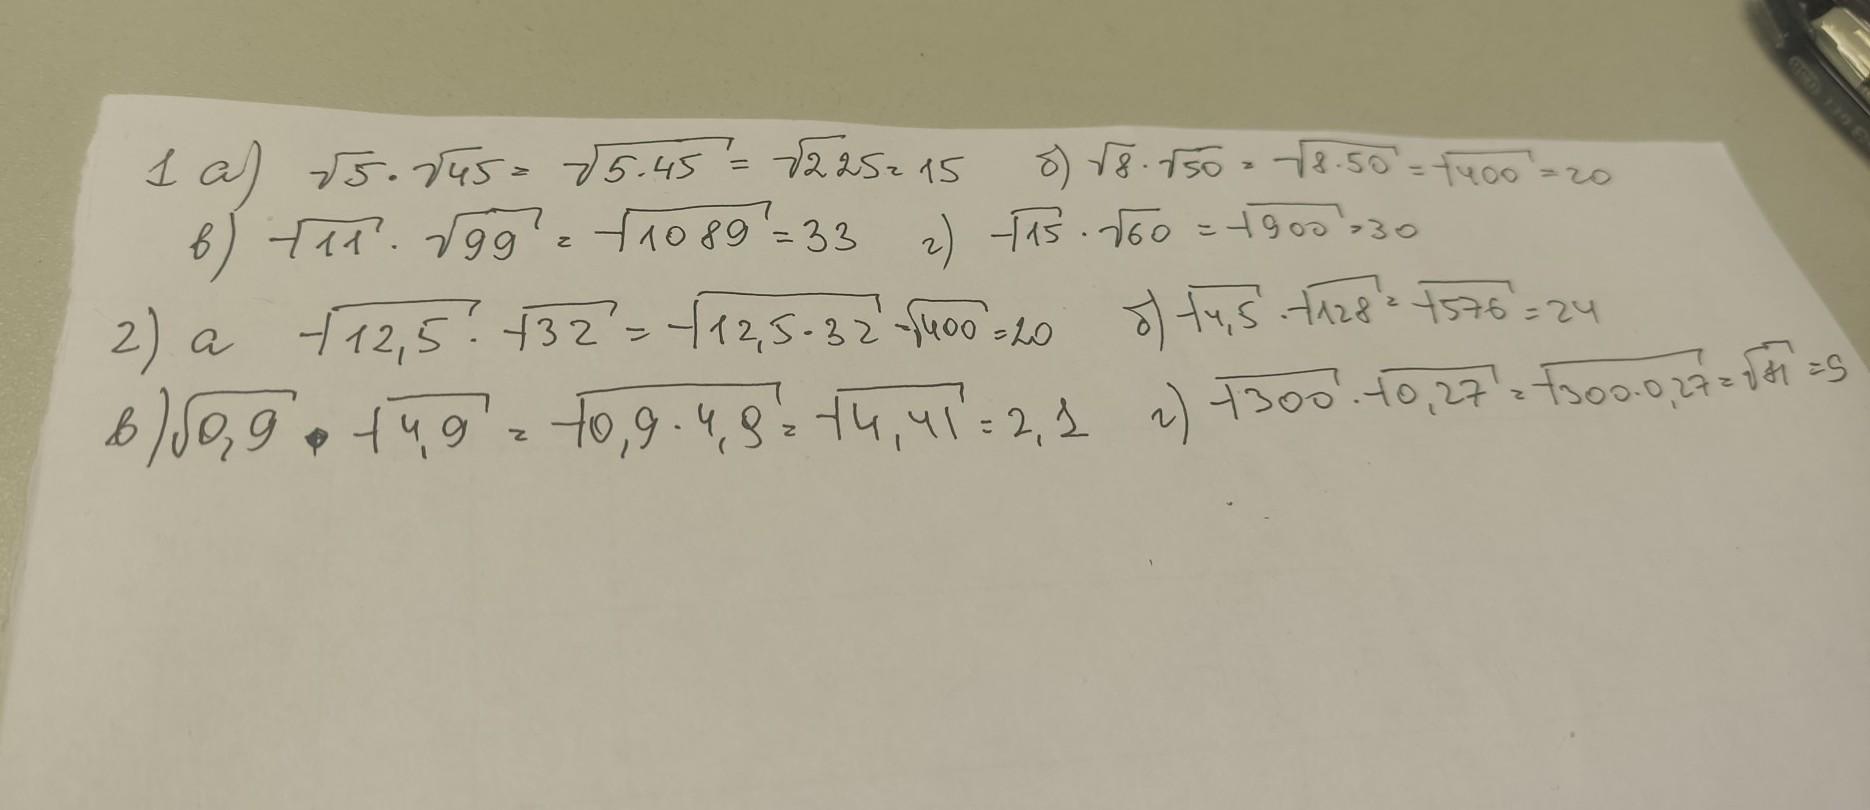 1 а) √5 · √45 = √5.45 = √225 = 15 б) √8 · √50 = √8.50 = √400 = 20
в) √11 · √99 = √1089 = 33 г) √15 · √60 = √900 = 30
2) а √12,5 · √32 = √12,5·32 = √400 = 20 б) √4,5 · √128 = √576 = 24
в) √0,9 · √4,9 = √0,9·4,9 = √4,41 = 2,1 г) √300 · √0,27 = √300·0,27 = √81 = 9